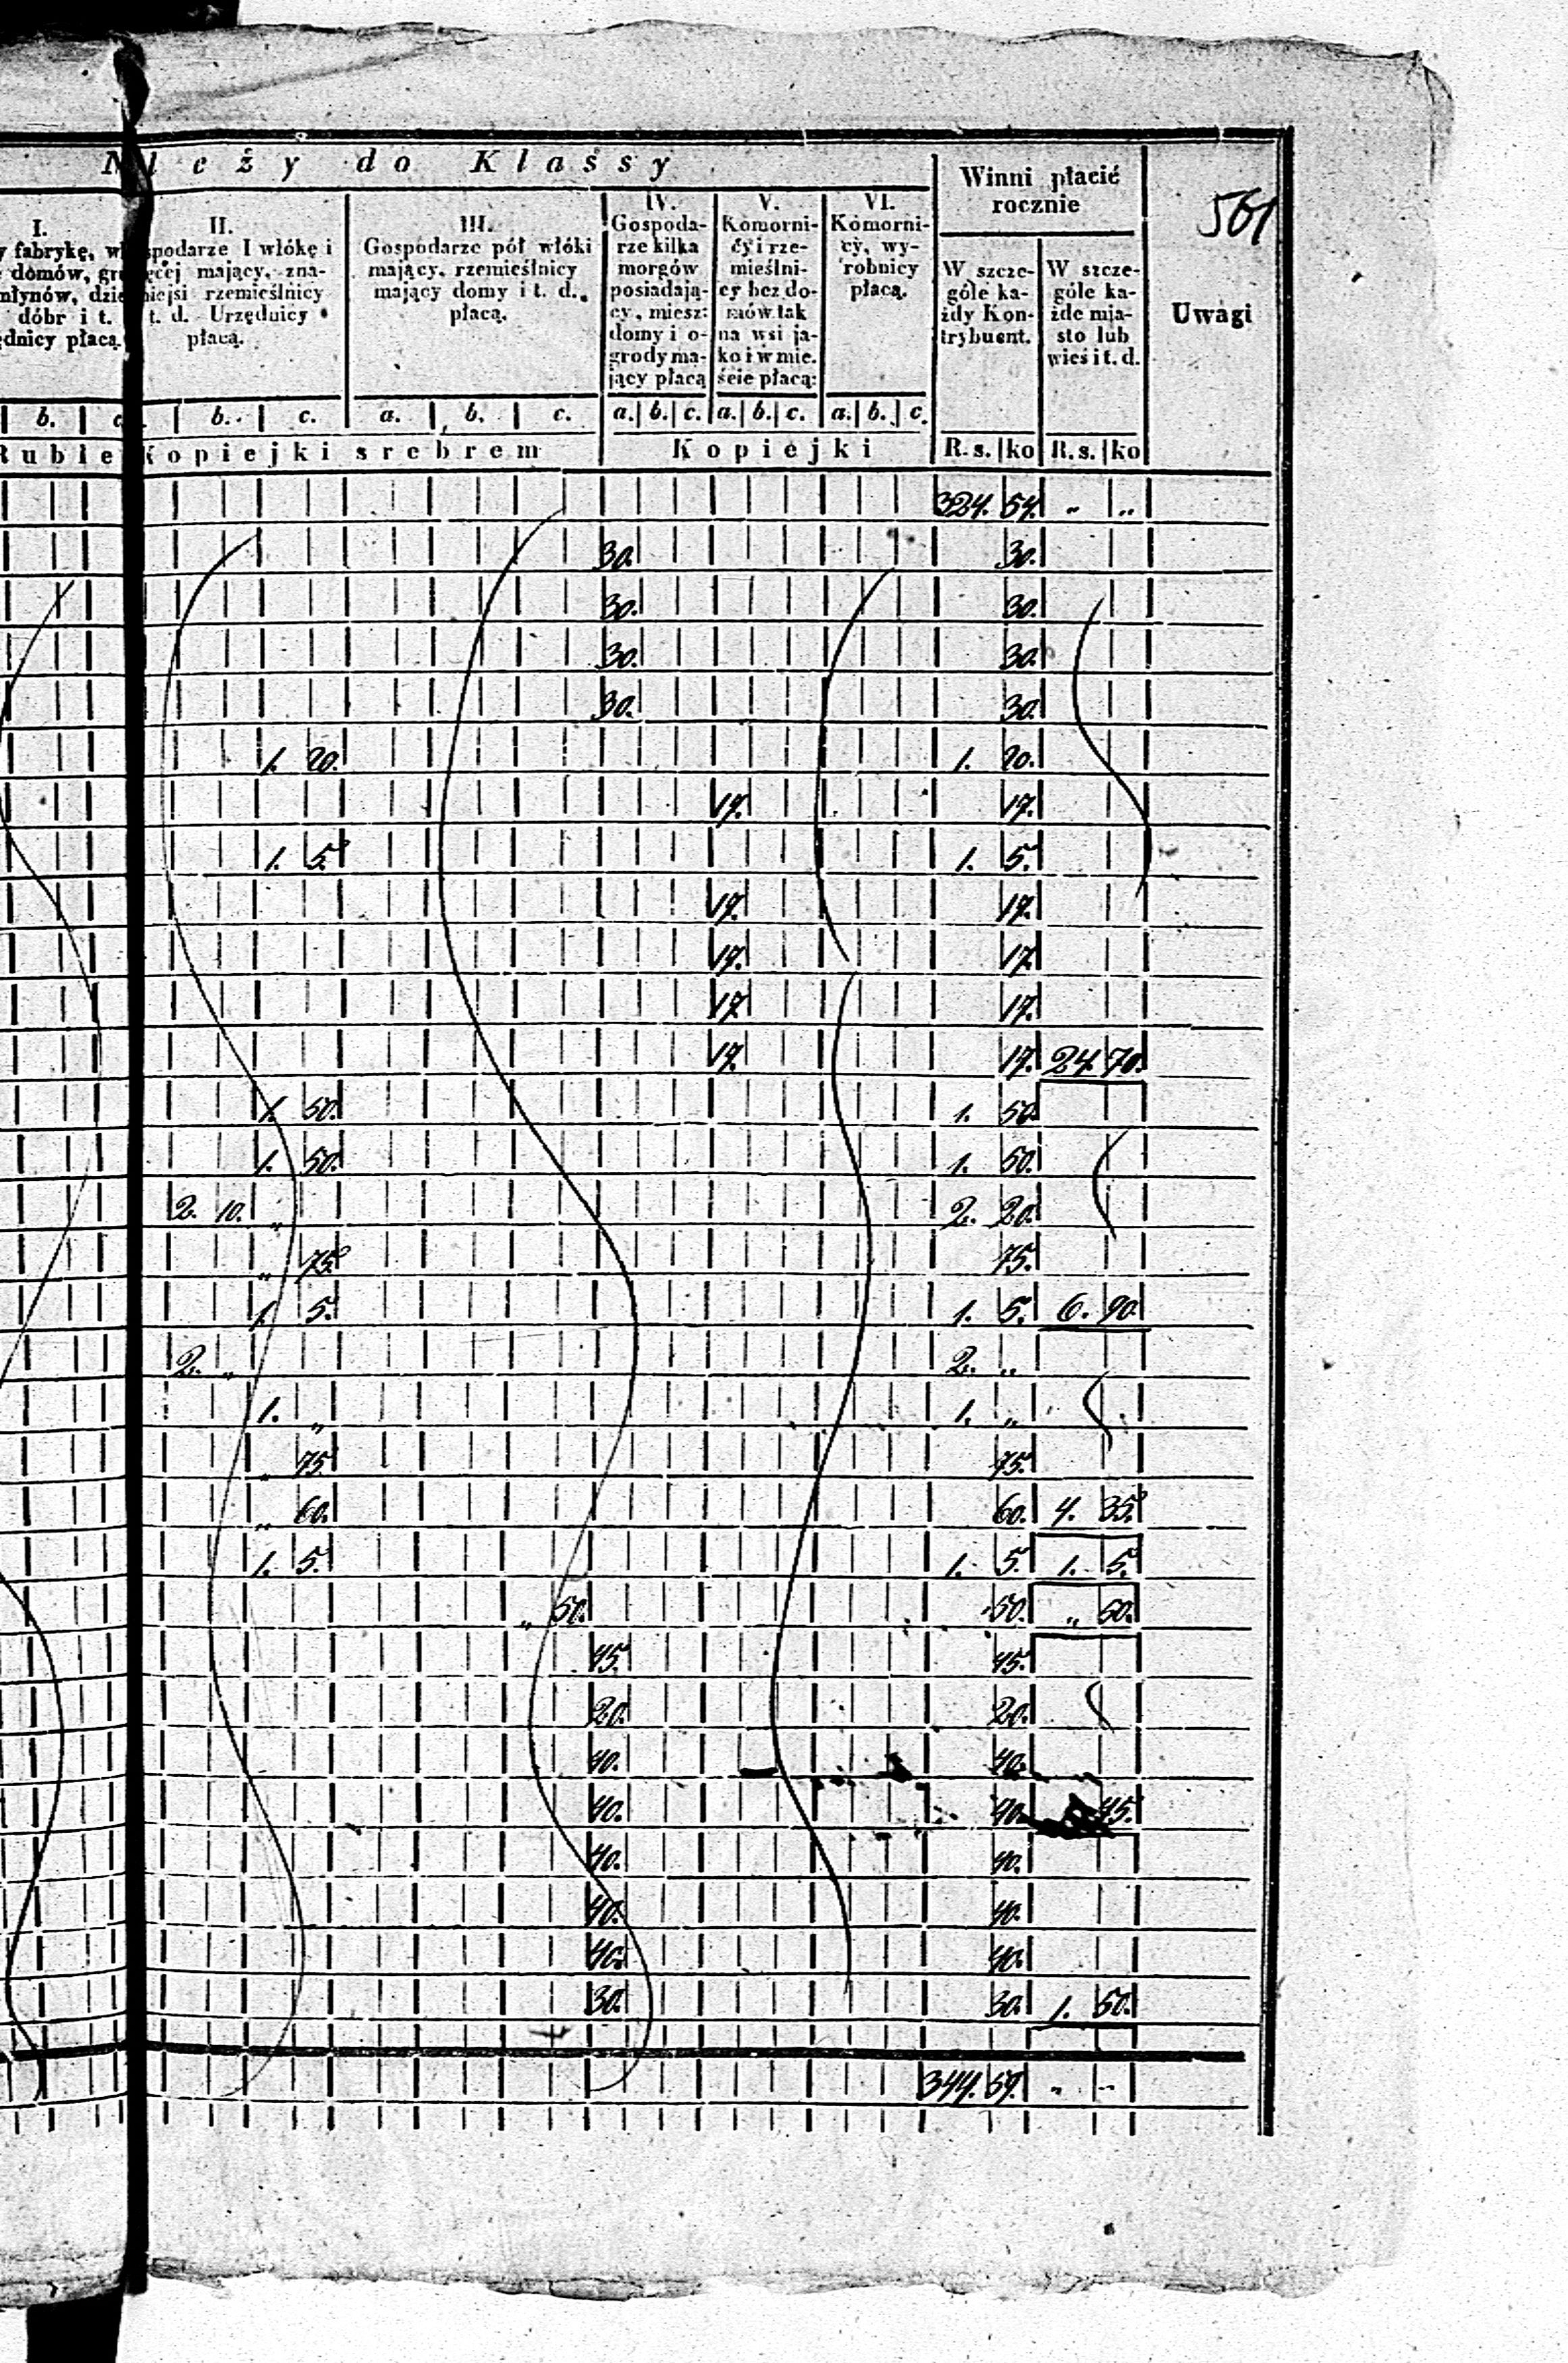 N leży do Klassy
Winni płacić rocznie
561
I.
y fabrykę, w
domów, gr
młynów, dzie
dóbr i t.
ędnicy płacą
II.
spodarze I włókę i
ęcej mający, zna-
niejsi rzemieślnicy
t. d. Urzędnicy
płacą.
III.
Gospodarze pół włóki
mający, rzemieślnicy
mający domy i t. d.
płacą.
IV.
Gospoda-
rze kilka
morgów
posiadają-
cy, miesz:
domy i o-
grody ma-
jący płacą
V.
Komorni-
cy i rze-
mieślni-
cy bez do-
mów tak
na wsi ja-
ko i w mie.
ście płacą:
VI.
Komorni-
cy, wy-
robnicy
płacą.
W szcze-
góle ka-
żdy Kon-
trybuent.
W szcze-
góle ka-
żde mia-
sto lub
wieś i t. d.
Uwagi
b. c. b. c. a. b. c. a. b. c. a. b. c. a. b. c.
Ruble Kopiejki srebrem Kopiejki R. s. ko R. s. ko
324. 54. „ „
30. 30.
30. 30.
30. 30.
30. 30.
1. 20. 1. 20.
17. 17.
1. 5. 1. 5.
17. 17.
17. 17.
17. 17.
17. 17. 24. 70.
1. 50. 1. 50
1. 50. 1. 50.
2. 10. „ 2. 20.
„ 75. 75.
1. 5. 1. 5. 6. 90.
2. „ 2. „
1. „ 1. „
„ 75 75.
„ 60. 60. 4. 35.
1. 5. 1. 5. 1. 5.
„ 50. 50. „ 50.
45. 45.
20. 20.
40. 40.
40. 40. 45.
40. 40.
40. 40.
40. 40.
30. 30. 1. 50.
344. 59. „ „